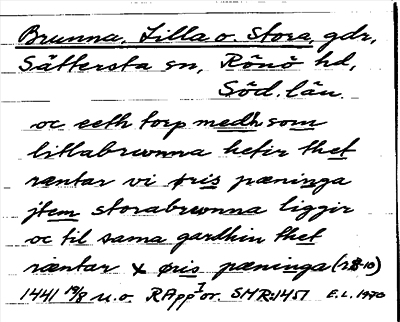 Brunna, Lilla o. Stora, gdr,
Sättersta sn, Rönö hd,
Söd. län.
oc eeth torp medh som
litlabrwnna hetir thet
ræntar vi øris pæninga
jtem storabrwnna liggir
oc til sama gardhin thet
ræntar x øris pæninga
1441 19/8 u.o. RApp or. SMR:1451 E.L. 1970